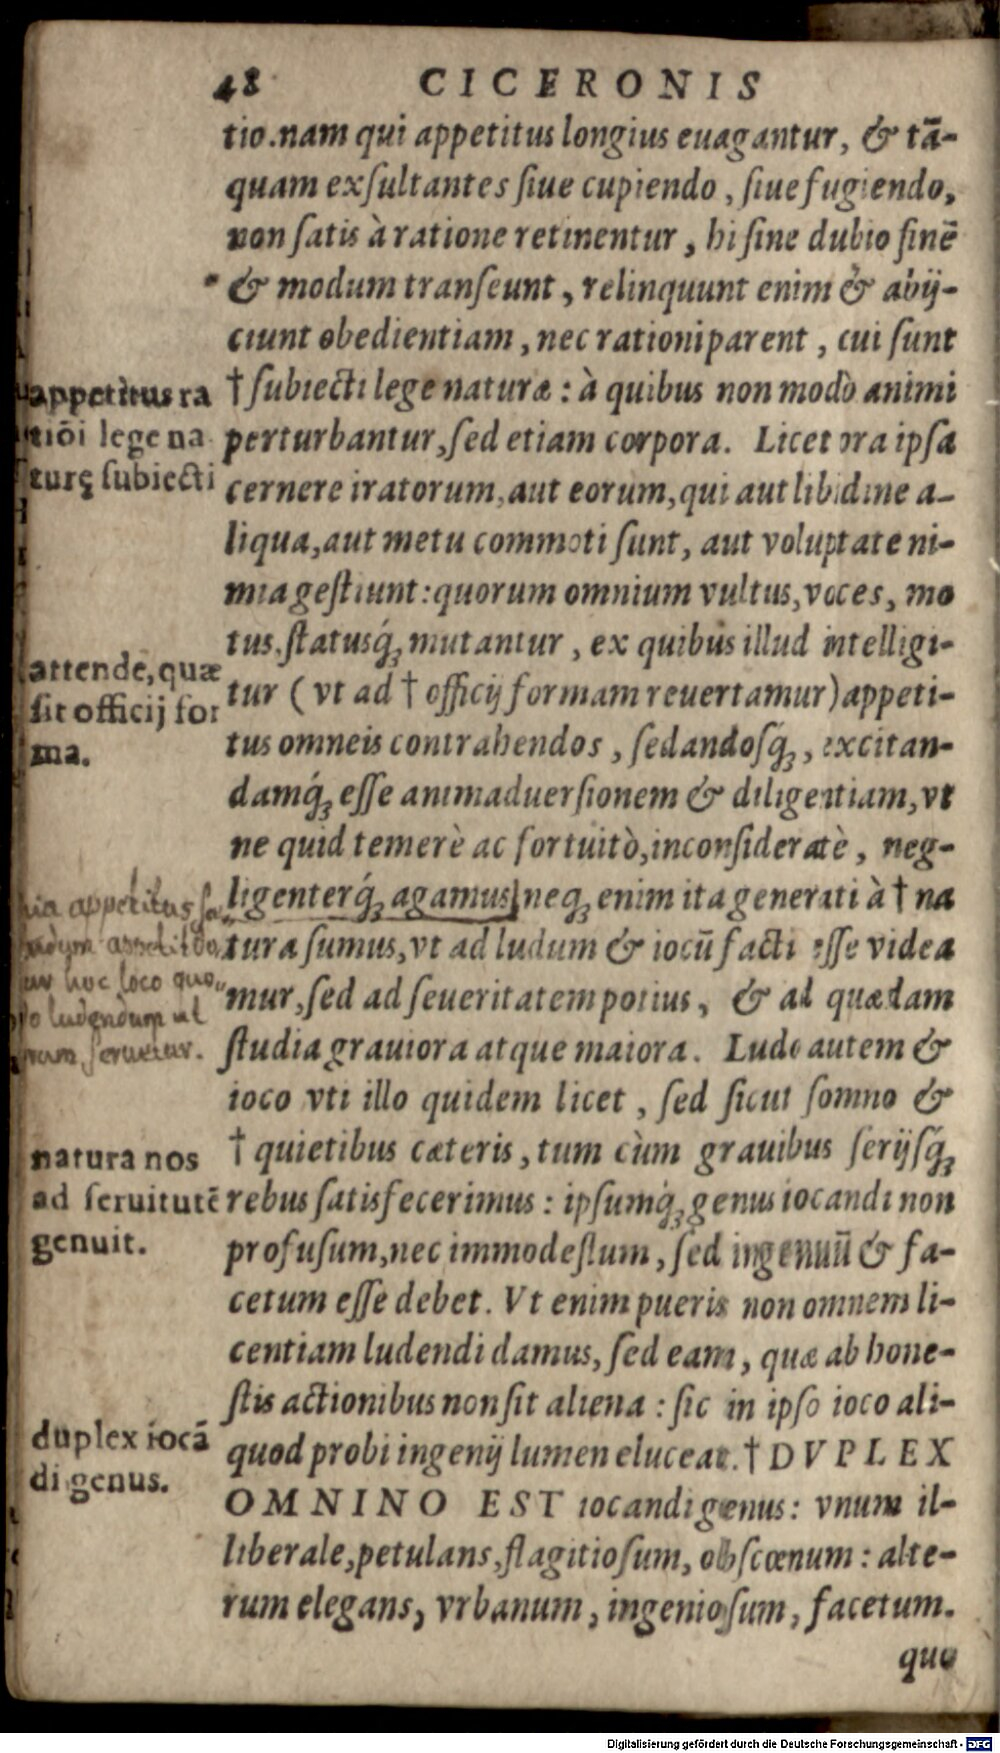 48 CICERONIS
tio.nam qui appetitus longius euagantur, & tā-
quam exſultantes ſiue cupiendo, ſiue fugiendo,
non ſatis à ratione retinentur, hi ſine dubio finē
& modum tranſeunt, relinquunt enim & abij-
ciunt obedientiam, nec rationi parent, cui ſunt
† ſubiecti lege naturæ: à quibus non modò animi
perturbantur, ſed etiam corpora. Licet ora ipſa
cernere iratorum, aut eorum, qui aut libidine a-
liqua, aut metu commoti ſunt, aut voluptate ni-
mia geſtiunt: quorum omnium vultus, voces, mo
tus, ſtatusq́ꝫ mutantur, ex quibus illud intelligi-
tur (vt ad † officij formam reuertamur) appeti-
tus omneis contrahendos, ſedandoſq́ꝫ, excitan-
damq́ꝫ eſſe animaduerſionem & diligentiam, vt
ne quid temerè ac fortuitò, inconſideratè, neg-
ligenterq́ꝫ agamus] neqꝫ enim ita generati à † na
tura ſumus, vt ad ludum & iocū facti eſſe videa
mur, ſed ad ſeueritatem potius, & ad quædam
ſtudia grauiora atque maiora. Ludo autem &
ioco vti illo quidem licet, ſed ſicut ſomno &
† quietibus cæteris, tum cùm grauibus ſerijſq́ꝫ
rebus ſatisfecerimus: ipſumq́ꝫ genus iocandi non
profuſum, nec immodeſtum, ſed ingenuū & fa-
cetum eſſe debet. Vt enim pueris non omnem li-
centiam ludendi damus, ſed eam, quæ ab hone-
ſtis actionibus non ſit aliena: ſic in ipſo ioco ali-
quod probi ingenij lumen eluceat. † DVPLEX
OMNINO EST iocandi genus: vnum il-
liberale, petulans, flagitioſum, obſcœnum: alte-
rum elegans, vrbanum, ingenioſum, facetum.
quo
appetitus ra
tiōi lege na
turę ſubiecti
attende, quæ
ſit officij for
ma.
appetitus
hoc loco quo
ludendum
seruetur.
natura nos
ad ſeruitutē
genuit.
duplex iocā
di genus.
Digitalisierung gefördert durch die Deutsche Forschungsgemeinschaft - DFG